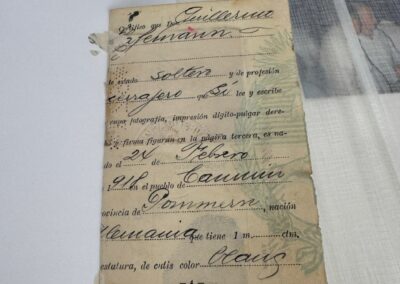 Certifico que Don Guillermo
Hemann
de estado soltero y de profesión
cerrajero que Sí lee y escribe
cuya fotografía, impresión dígito-pulgar dere-
cha y firma figuran en la página tercera, es na-
cido el 24 de Febrero
1918 en el pueblo de
provincia de Pommern, nación
Alemania que tiene 1 m. ctm,
estatura, de cutis color